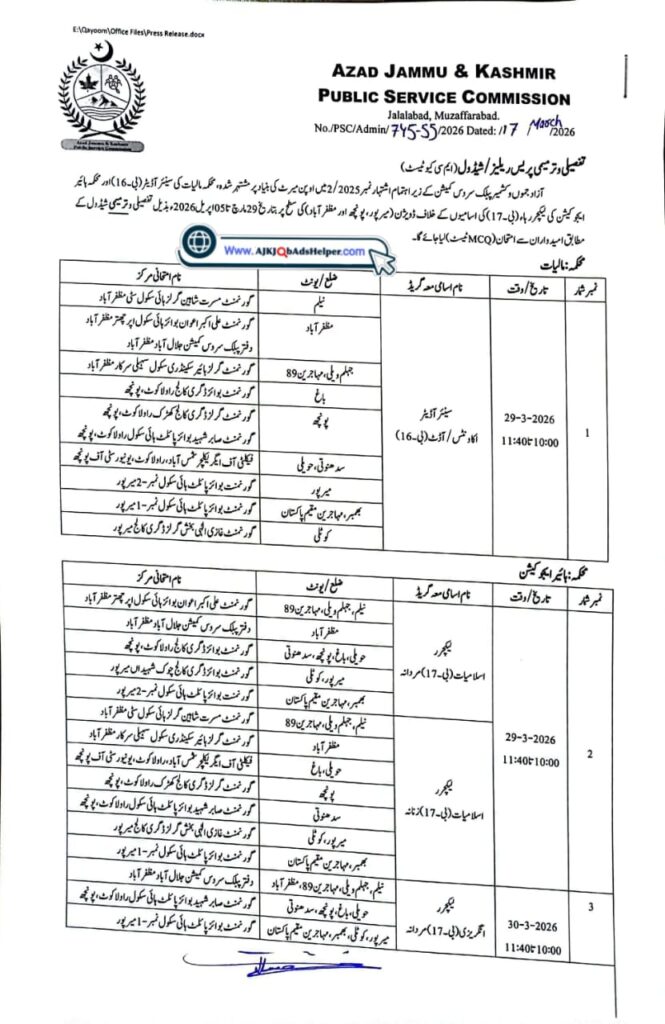 E:\Qayoom\Office Files\Press Release.docx
AZAD JAMMU & KASHMIR
PUBLIC SERVICE COMMISSION
Jalalabad, Muzaffarabad.
No./PSC/Admin/745-55/2026 Dated: /17 March /2026
Azad Jammu & Kashmir
Public Service Commission
تفصیلی و ترمیمی پریس ریلیز/شیڈول (ایم سی کیو ٹیسٹ)
آزاد جموں و کشمیر پبلک سروس کمیشن کے زیر اہتمام اشتہار نمبر 2/2025 میں اوپن میرٹ کی بنیاد پر مشتہر شدہ، محکمہ مالیات کی سینئر آڈیٹر (بی-16) اور محکمہ ہائیر
ایجوکیشن کی لیکچرر ہا، (بی-17) کی اسامیوں کے خلاف ڈویژن (میرپور، پونچھ اور مظفرآباد) کی سطح پر بتاریخ 29 مارچ تا 05 اپریل 2026، بذیل تفصیلی و ترمیمی شیڈول کے
مطابق امیدواران سے امتحان (MCQ ٹیسٹ) لیا جائے گا۔
Www.AJKJobAdsHelper.com
محکمہ: مالیات
نمبر شمار تاریخ/وقت نام اسامی معہ گریڈ ضلع/یونٹ نام امتحانی مرکز
1 29-3-2026 10:00 تا 11:40 سینئر آڈیٹر اکاونٹس/آڈٹ (بی-16)
نیلم گورنمنٹ مسرت شاہین گرلز ہائی سکول سٹی مظفرآباد
مظفرآباد گورنمنٹ علی اکبر اعوان بوائز ہائی سکول اپر چھتر مظفرآباد
دفتر پبلک سروس کمیشن جلال آباد مظفرآباد
جہلم ویلی، مہاجرین 89 گورنمنٹ گرلز ہائیر سکینڈری سکول سہیلی سرکار مظفرآباد
باغ گورنمنٹ بوائز ڈگری کالج راولاکوٹ، پونچھ
پونچھ گورنمنٹ گرلز ڈگری کالج کھڑک راولاکوٹ، پونچھ
گورنمنٹ صابر شہید بوائز پائلٹ ہائی سکول راولاکوٹ، پونچھ
سدھنوتی، حویلی فیکلٹی آف ایگریکلچر شمس آباد، راولاکوٹ، یونیورسٹی آف پونچھ
میرپور گورنمنٹ بوائز پائلٹ ہائی سکول نمبر-2 میرپور
بھمبر، مہاجرین مقیم پاکستان گورنمنٹ بوائز پائلٹ ہائی سکول نمبر-1 میرپور
کوٹلی گورنمنٹ غازی الٰہی بخش گرلز ڈگری کالج میرپور
محکمہ: ہائیر ایجوکیشن
نمبر شمار تاریخ/وقت نام اسامی معہ گریڈ ضلع/یونٹ نام امتحانی مرکز
2 29-3-2026 10:00 تا 11:40
لیکچرر اسلامیات (بی-17) مردانہ
نیلم، جہلم ویلی، مہاجرین 89 گورنمنٹ علی اکبر اعوان بوائز ہائی سکول اپر چھتر مظفرآباد
مظفرآباد دفتر پبلک سروس کمیشن جلال آباد مظفرآباد
حویلی، باغ، پونچھ، سدھنوتی گورنمنٹ بوائز ڈگری کالج راولاکوٹ، پونچھ
میرپور، کوٹلی گورنمنٹ بوائز ڈگری کالج چوک شہیداں میرپور
بھمبر، مہاجرین مقیم پاکستان گورنمنٹ بوائز پائلٹ ہائی سکول نمبر-2 میرپور
لیکچرر اسلامیات (بی-17) زنانہ
نیلم، جہلم ویلی، مہاجرین 89 گورنمنٹ مسرت شاہین گرلز ہائی سکول سٹی مظفرآباد
مظفرآباد گورنمنٹ گرلز ہائیر سکینڈری سکول سہیلی سرکار مظفرآباد
حویلی، باغ فیکلٹی آف ایگریکلچر شمس آباد، راولاکوٹ، یونیورسٹی آف پونچھ
پونچھ گورنمنٹ گرلز ڈگری کالج کھڑک راولاکوٹ، پونچھ
سدھنوتی گورنمنٹ صابر شہید بوائز پائلٹ ہائی سکول راولاکوٹ، پونچھ
میرپور، کوٹلی گورنمنٹ غازی الٰہی بخش گرلز ڈگری کالج میرپور
بھمبر، مہاجرین مقیم پاکستان گورنمنٹ بوائز پائلٹ ہائی سکول نمبر-1 میرپور
3 30-3-2026 10:00 تا 11:40
لیکچرر انگریزی (بی-17) مردانہ
نیلم، جہلم ویلی، مہاجرین 89، مظفرآباد دفتر پبلک سروس کمیشن جلال آباد مظفرآباد
حویلی، باغ، پونچھ، سدھنوتی گورنمنٹ صابر شہید بوائز پائلٹ ہائی سکول راولاکوٹ، پونچھ
میرپور، کوٹلی، بھمبر، مہاجرین مقیم پاکستان گورنمنٹ بوائز پائلٹ ہائی سکول نمبر-1 میرپور